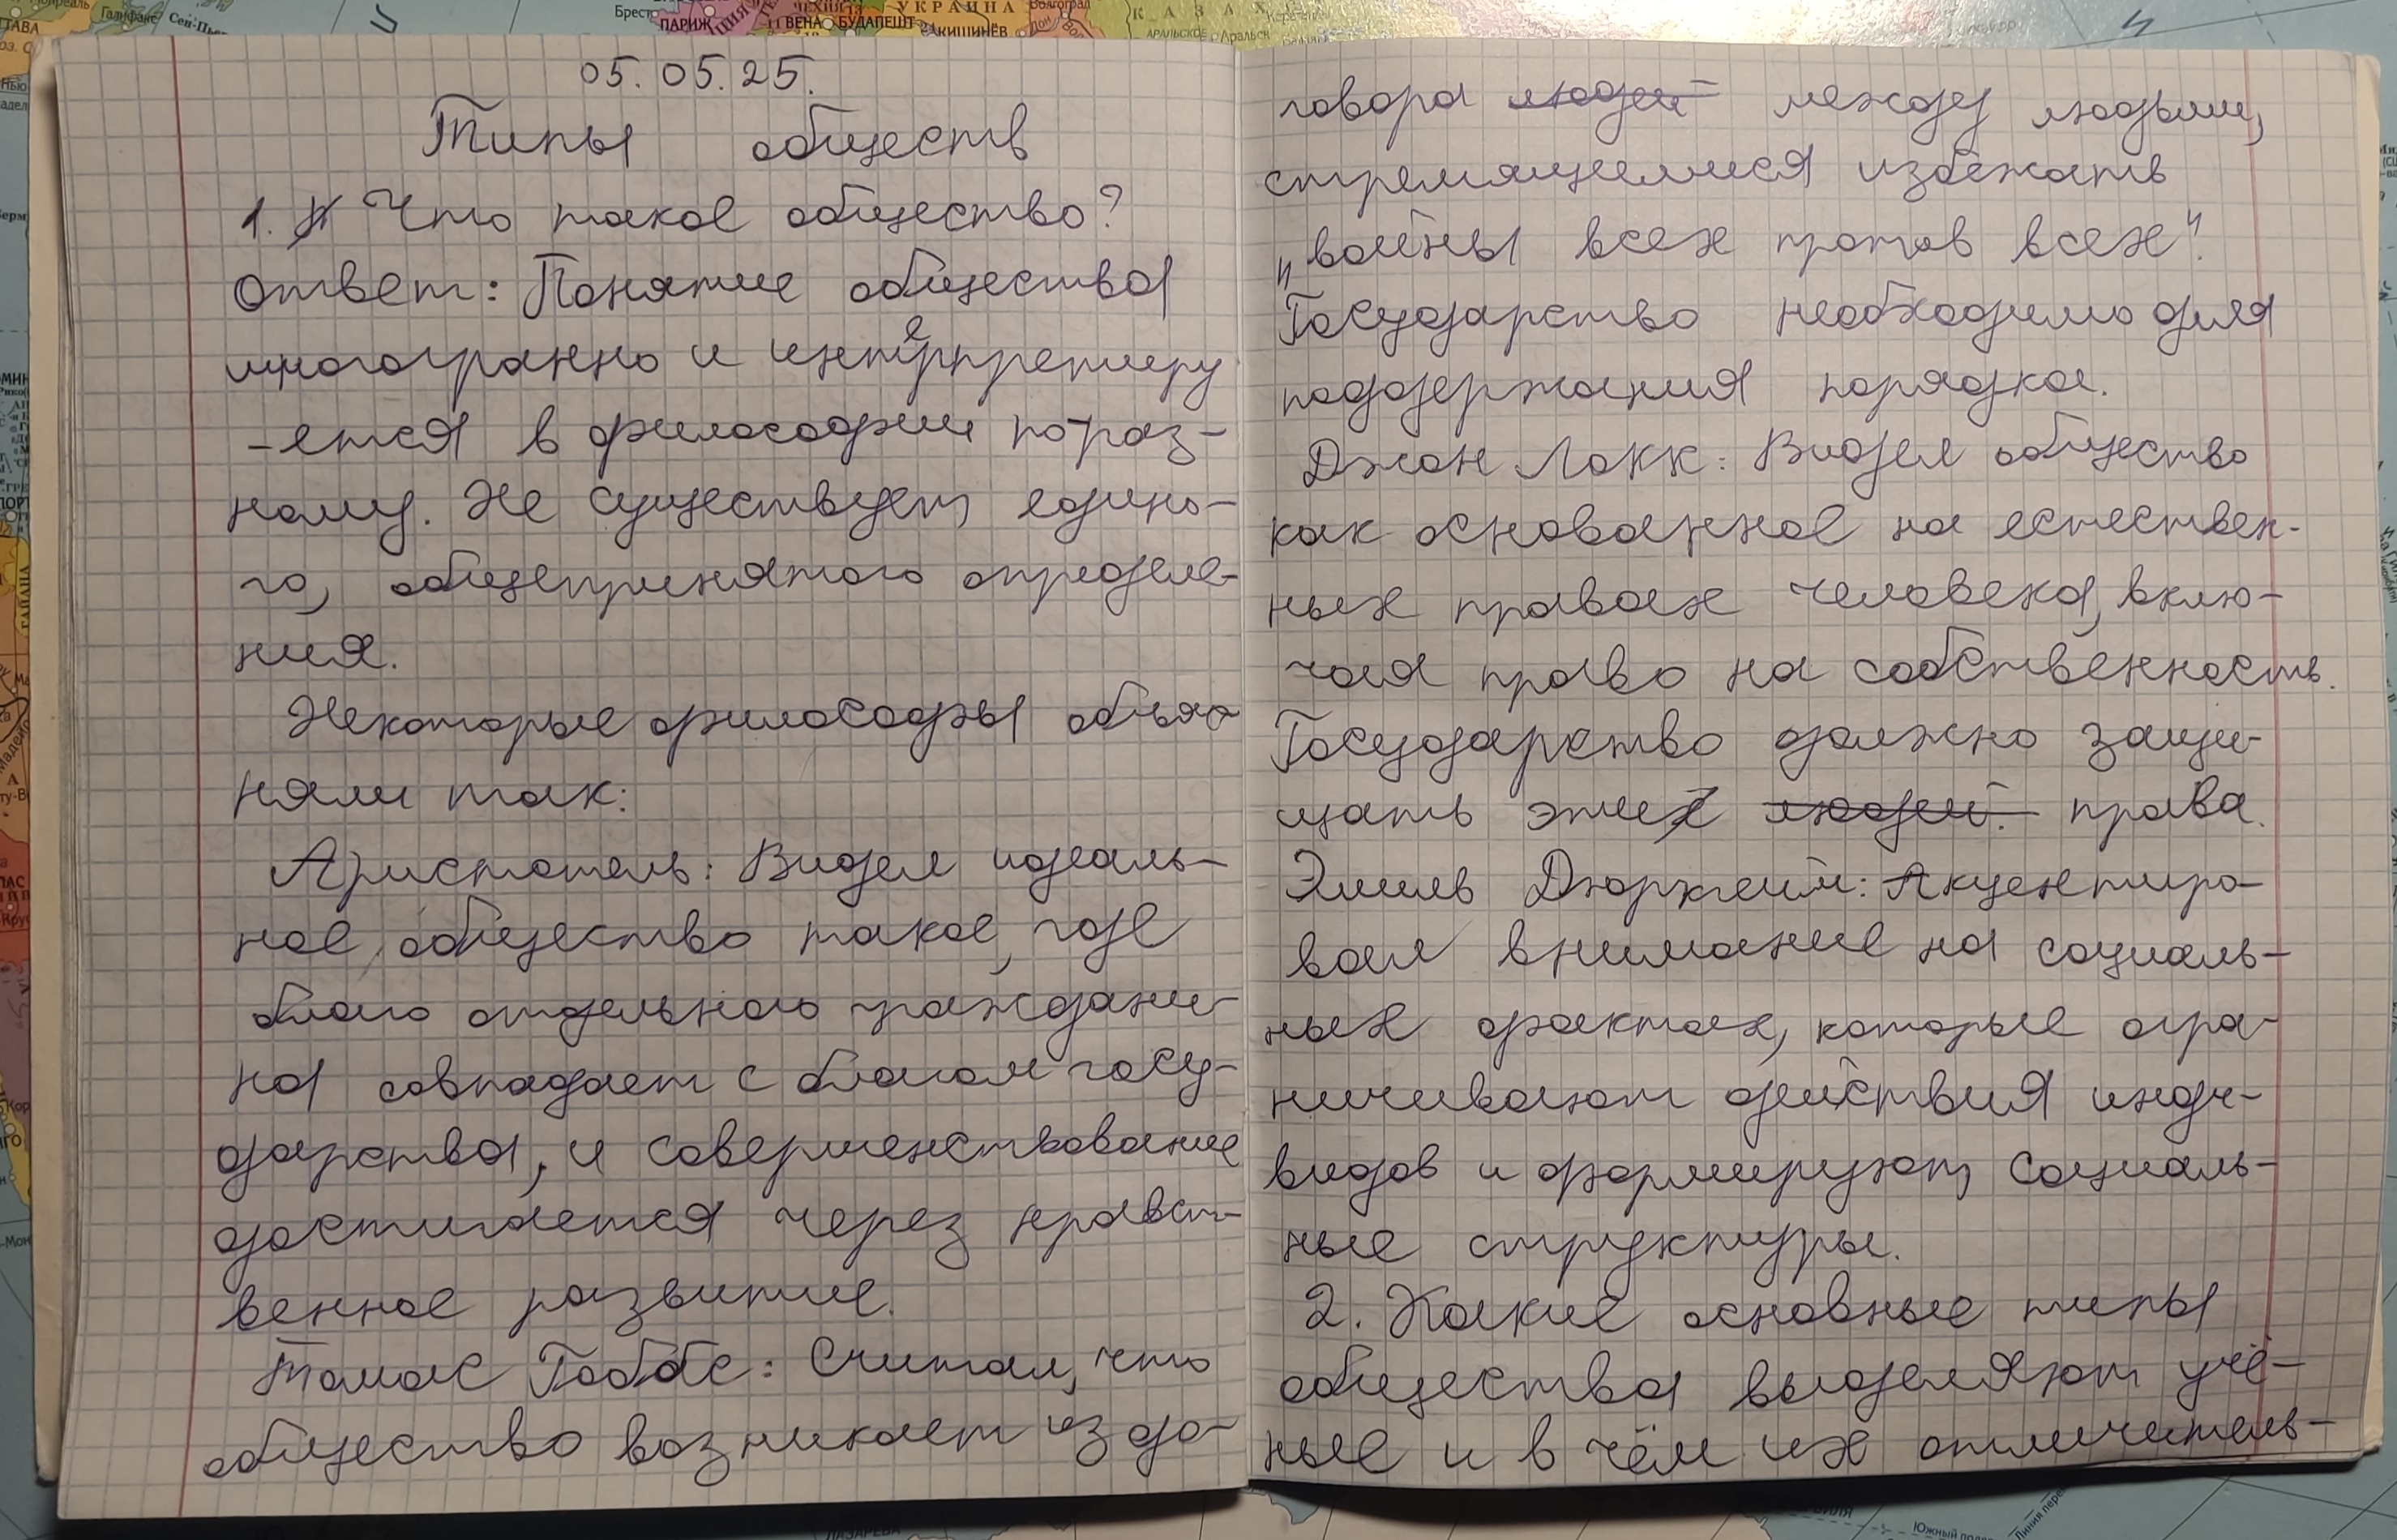 05.05.25.
Типы обществ
1. Что такое общество?
Ответ: Понятие общества
многогранно и интерпретиру
-ется в философии по-раз-
ному. Не существует едино-
го, общепринятого определе-
ния.
Некоторые философы объяс
няли так:
Аристотель: Видел идеаль-
ное общество такое, где
благо отдельного граждани-
на совпадает с благом госу-
дарства, и совершенствование
достигается через нравст-
венное развитие.
Томас Гоббс: Считал, что
общество возникает из до-
говора людей между людьми,
стремящемися избежать
„войны всех против всех".
Государство необходимо для
поддержания порядка.
Джон Локк: Видел общество
как основанное на естествен-
ных правах человека, вклю-
чая право на собственность.
Государство должно защи-
щать эти людей. права.
Эмиль Дюркгейм: Акцентиро-
вал внимание на социаль-
ных фактах, которые огра-
ничивают действия инди-
видов и формируют социаль-
ные структуры.
2. Какие основные типы
общества выделяют учё-
ные и в чём их отличитель-
ПАРИЖ
ВЕНА
БУДАПЕШТ
КИШИНЁВ
УКРАИНА
Брест
Аральск
Галифакс